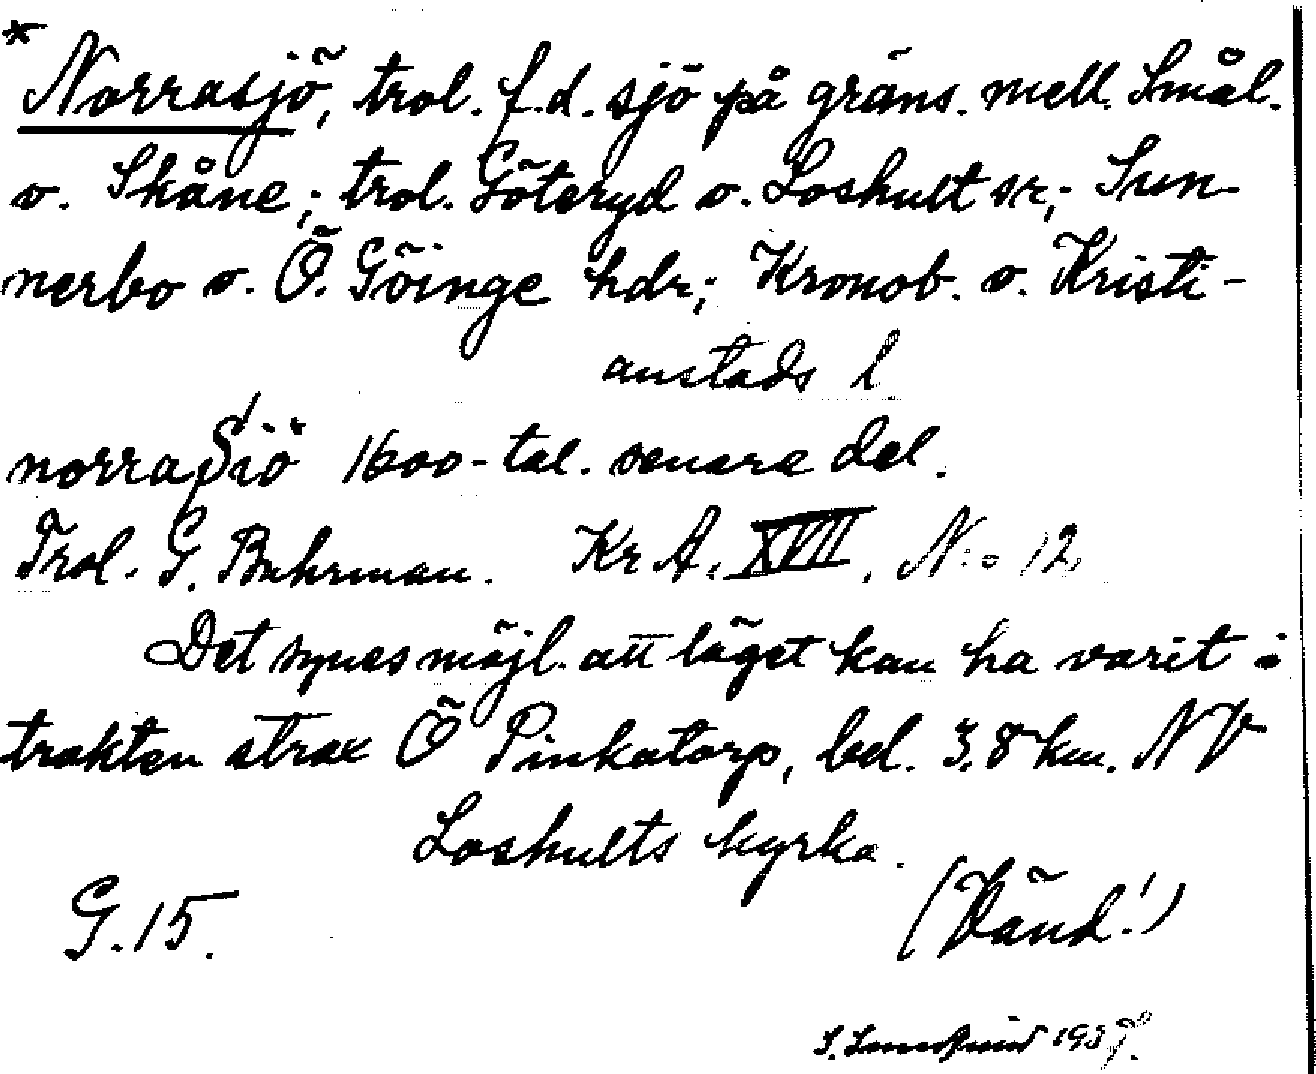 * Norrasjö, trol. f.d. sjö på gräns. mell. Smål.
o. Skåne; trol. Göteryd o. Loshult sr; Sun-
nerbo o. Ö. Göinge hdr; Kronob. o. Kristi-
anstads l
norrasiö 1600-tal. senare del.
Trol. G. Buhrman. Kr A. XVII, N:o 12
Det synes möjl. att läget kan ha varit i
trakten strax Ö Pinkatorp, bel. 3,8 km. NV
Loshults kyrka.
G. 15. (Vänd!)